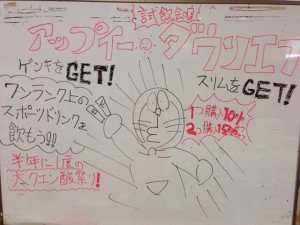 試飲会
アップイー ダウンエフ
ゲンキをGET!
スリムをGET!
ワンランク上の
スポーツドリンクを
飲もう!!
1つ購入10%
2つ購入15%
半年に1度の
大クエン酸祭り!